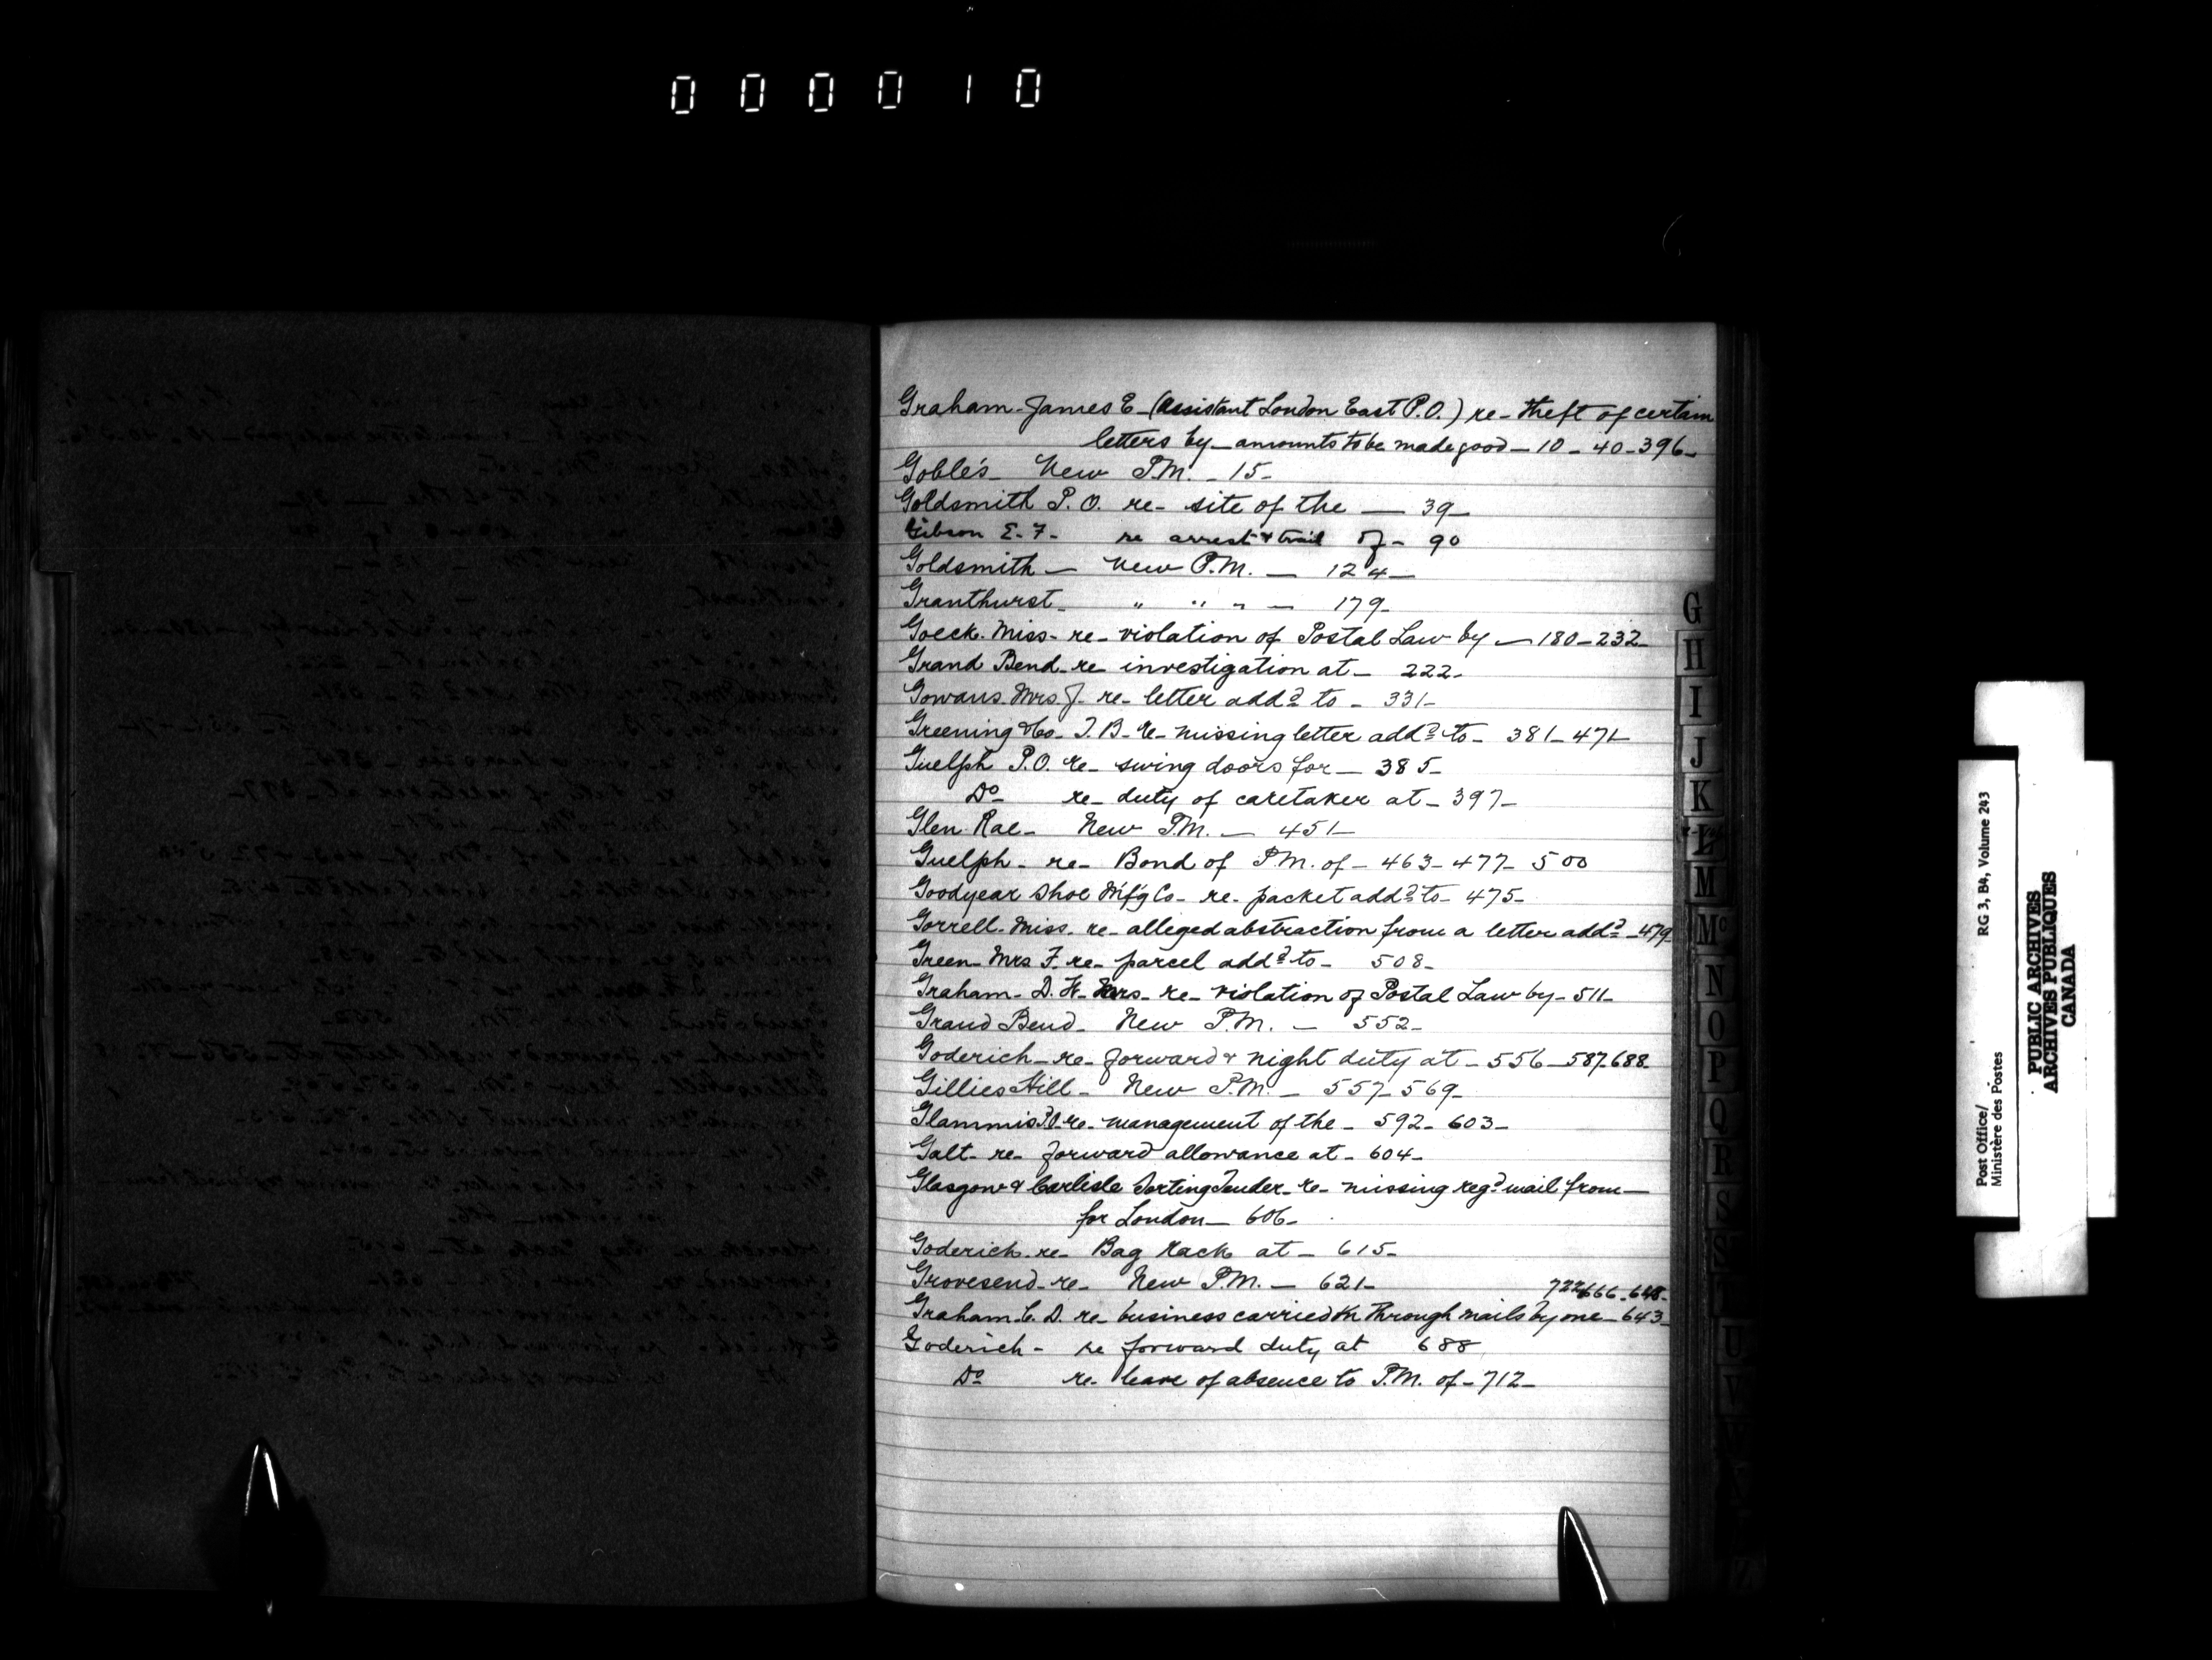 000010
Graham - James E - (Assistant London East P.O.) re - theft of certain
letters by - amounts to be made good - 10 - 40 - 396 -
Goble's - New P.M. - 15 -
Goldsmith P.O. re - site of the - 39 -
Gibson E. F. - re arrest & trial of - 90
Goldsmith - New P.M. - 124 -
Granthurst - " " " - 179 -
Goeck. Miss - re - violation of Postal Law by - 180 - 232 -
Grand Bend - re - investigation at - 222 -
Gowans. Mrs. J - re - letter addd to - 331 -
Greening & Co - T. B. - re - missing letter addd to - 381 - 471 -
Guelph P.O. re - swing doors for - 385 -
Do - re - duty of caretaker at - 397 -
Glen Rae - New P.M. - 451 -
Guelph - re - Bond of P.M. of - 463 - 477 - 500
Goodyear Shoe M'f'g Co - re - packet addd to - 475 -
Gorrell - Miss - re - alleged abstraction from a letter addd - 479
Green - Mrs F. re - parcel addd to - 508 -
Graham - D. H. Mrs - re - violation of Postal Law by - 511 -
Grand Bend - New P.M. - 552 -
Goderich - re - forward & night duty at - 556 - 587 - 688 -
Gillies Hill - New P.M. - 557 - 569 -
Glammis P.O. re - management of the - 592 - 603 -
Galt - re - forward allowance at - 604 -
Glasgow & Carlisle Sorting Tender - re - missing regd mail from -
for London - 606 -
Goderich - re - Bag rack at - 615 -
Grovesend - re - New P.M. - 621 -
722 - 666 - 648 -
Graham - C. D. re - business carried on through mails by one - 643 -
Goderich - re forward duty at 688
Do re - leave of absence to P.M. of - 712 -
G
H
I
J
K
L
M
Mc
N
O
P
Q
R
S
T
U
V
W
Z
Post Office/ RG 3, B4, Volume 243
Ministère des Postes
PUBLIC ARCHIVES
ARCHIVES PUBLIQUES
CANADA